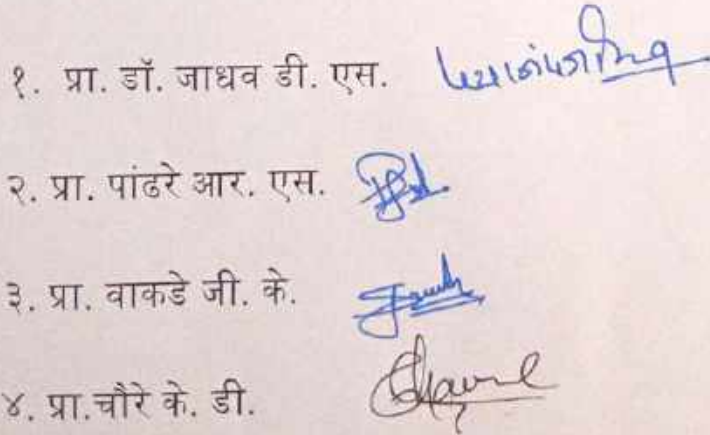 १. प्रा. डॉ. जाधव डी. एस.
२. प्रा. पांढरे आर. एस.
३. प्रा. वाकडे जी. के.
४. प्रा.चौरे के. डी.